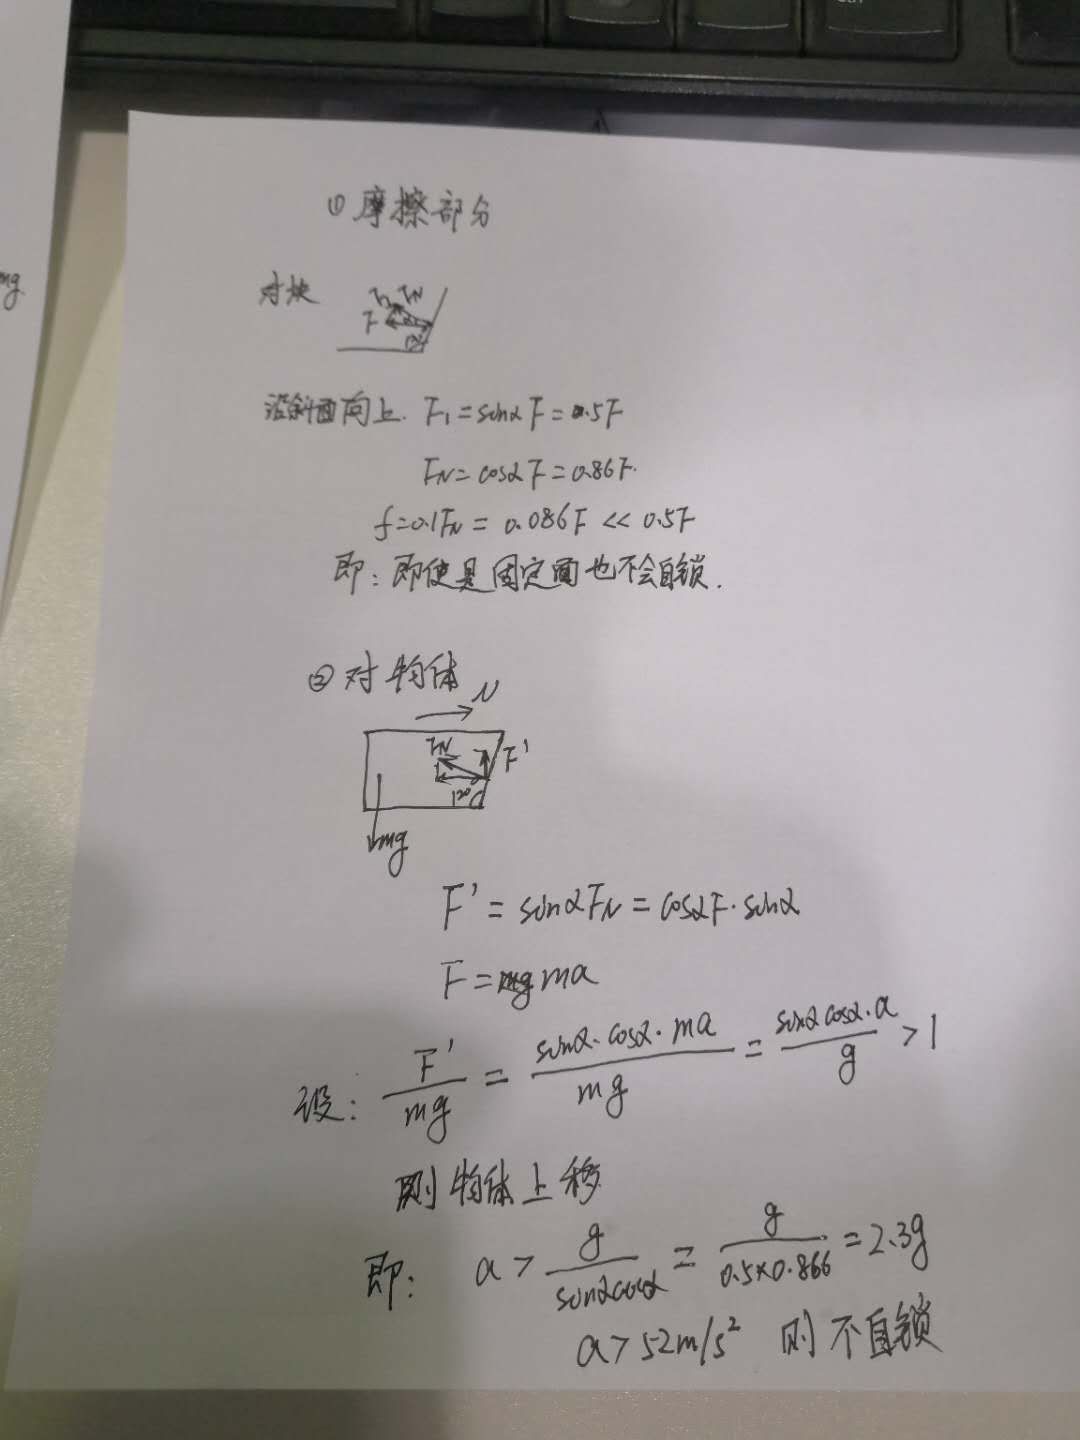 mg.
① 摩擦部分
对块
F FN
沿斜面向上. F₁=sinαF=0.5F
FN=cosαF=0.86F.
f=0.1FN=0.086F<<0.5F
即：即使是固定面也不会自锁.
② 对物体
N
FN F'
120°
mg
F'=sinαFN=cosαF·sinα
F=ma
设：F'/mg=sinα·cosα·ma/mg=sinαcosα·a/g>1
则物体上移
即：a>g/sinαcosα=g/0.5×0.866=2.3g
a>52m/s² 则不自锁